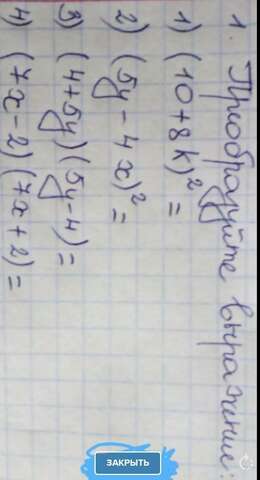 1. Преобразуйте выражение:
1) (10+8k)² =
2) (5y - 4x)² =
3) (4+5y)(5y-4) =
4) (7x-2)(7x+2) =
ЗАКРЫТЬ